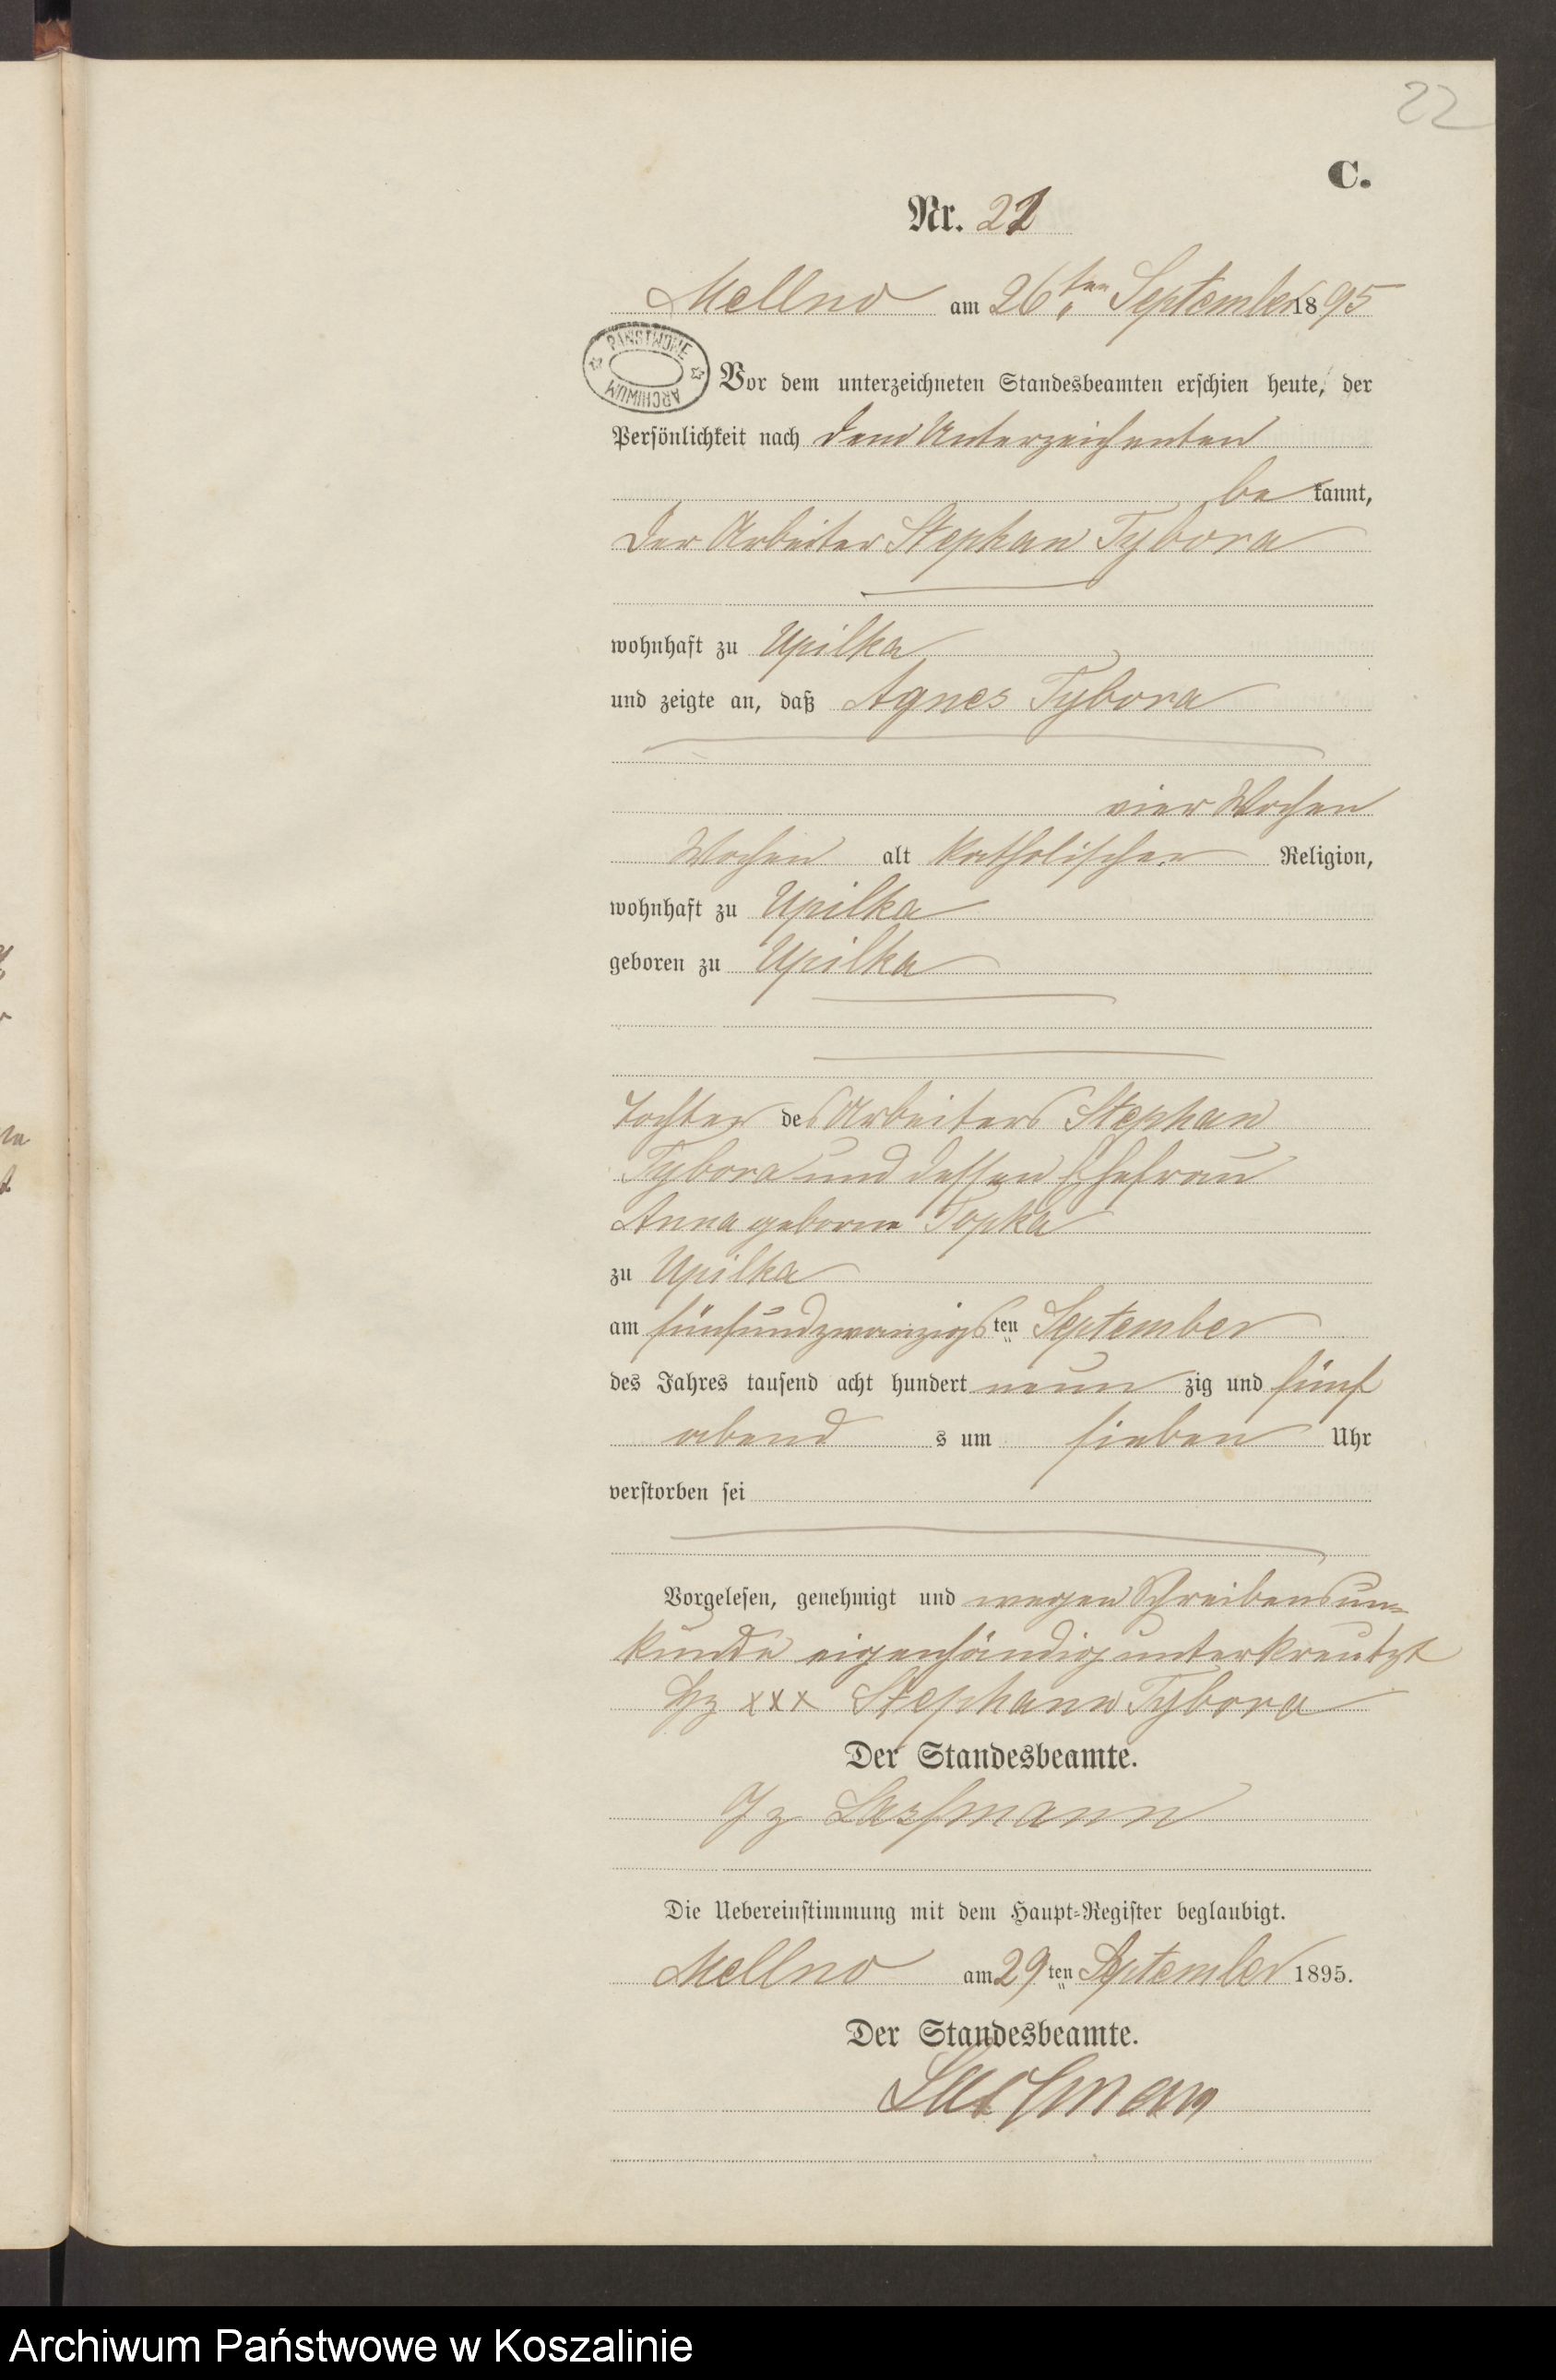 22
C.
Nr. 22
Mellno am 26ten September 1895
PAŃSTWOWE ARCHIWUM
Vor dem unterzeichneten Standesbeamten erschien heute, der
Persönlichkeit nach dem Unterzeichneten
be kannt,
der Arbeiter Stephan Tybora
wohnhaft zu Upilka
und zeigte an, daß Agnes Tybora
vier Wochen
Wochen alt katholischer Religion,
wohnhaft zu Upilka
geboren zu Upilka
Tochter des Arbeiters Stephan
Tybora und dessen Ehefrau
Anna geborne Topka
zu Upilka
am fünfundzwanzigsten September
des Jahres tausend acht hundert neun zig und fünf
abend s um sieben Uhr
verstorben sei
Vorgelesen, genehmigt und wegen Schreibensun=
kunde eigenhändig unterkreutzt
Hz xxx Stephann Tybora
Der Standesbeamte.
Gz
Die Uebereinstimmung mit dem Haupt=Register beglaubigt.
Mellno am 29ten September 1895.
Der Standesbeamte.
Archiwum Państwowe w Koszalinie